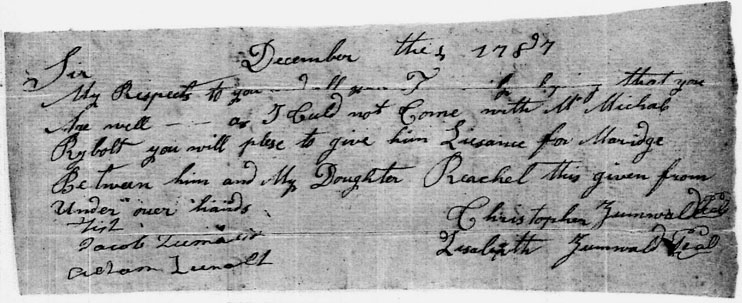 December the 5 1787
Sir
My Respects to you and all you I that you
Are well as I Culd not Come with Mr Michal
Rybolt you will plese to give him Lisance for Maridge
Between him and My Doughter Reachel this given from
Under ouer hands Christopher Zumwald Seal
Tist
Jacob Zumwalt Lisabeth Zumwald Seal
Adam Zumalt